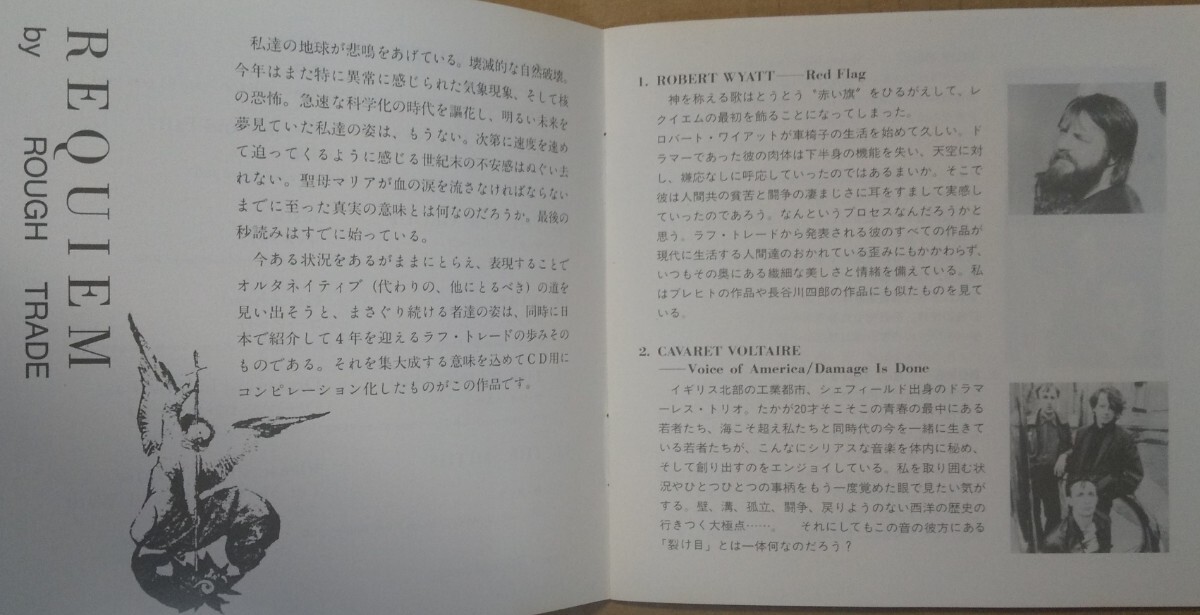 REQUIEM
by ROUGH TRADE
私達の地球が悲鳴をあげている。壊滅的な自然破壊。
今年はまた特に異常に感じられた気象現象、そして核
の恐怖。急速な科学化の時代を謳花し、明るい未来を
夢見ていた私達の姿は、もうない。次第に速度を速め
て迫ってくるように感じる世紀末の不安感はぬぐい去
れない。聖母マリアが血の涙を流さなければならない
までに至った真実の意味とは何なのだろうか。最後の
秒読みはすでに始っている。
今ある状況をあるがままにとらえ、表現することで
オルタネイティブ（代わりの、他にとるべき）の道を
見い出そうと、まさぐり続ける者達の姿は、同時に日
本で紹介して4年を迎えるラフ・トレードの歩みその
ものである。それを集大成する意味を込めてCD用に
コンピレーション化したものがこの作品です。
1. ROBERT WYATT——Red Flag
神を称える歌はとうとう〝赤い旗〟をひるがえして、レ
クイエムの最初を飾ることになってしまった。
ロバート・ワイアットが車椅子の生活を始めて久しい。ド
ラマーであった彼の肉体は下半身の機能を失い、天空に対
し、嫌応なしに呼応していったのではあるまいか。そこで
彼は人間共の貧苦と闘争の凄まじさに耳をすまして実感し
ていったのであろう。なんというプロセスなんだろうかと
思う。ラフ・トレードから発表される彼のすべての作品が
現代に生活する人間達のおかれている歪みにもかかわらず、
いつもその奥にある繊細な美しさと情緒を備えている。私
はブレヒトの作品や長谷川四郎の作品にも似たものを見て
いる。
2. CAVARET VOLTAIRE
——Voice of America/Damage Is Done
イギリス北部の工業都市、シェフィールド出身のドラマ
ーレス・トリオ。たかが20才そこそこの青春の最中にある
若者たち、海こそ超え私たちと同時代の今を一緒に生きて
いる若者たちが、こんなにシリアスな音楽を体内に秘め、
そして創り出すのをエンジョイしている。私を取り囲む状
況やひとつひとつの事柄をもう一度覚めた眼で見たい気が
する。壁、溝、孤立、闘争、戻りようのない西洋の歴史の
行きつく大極点……。　それにしてもこの音の彼方にある
「裂け目」とは一体何なのだろう？